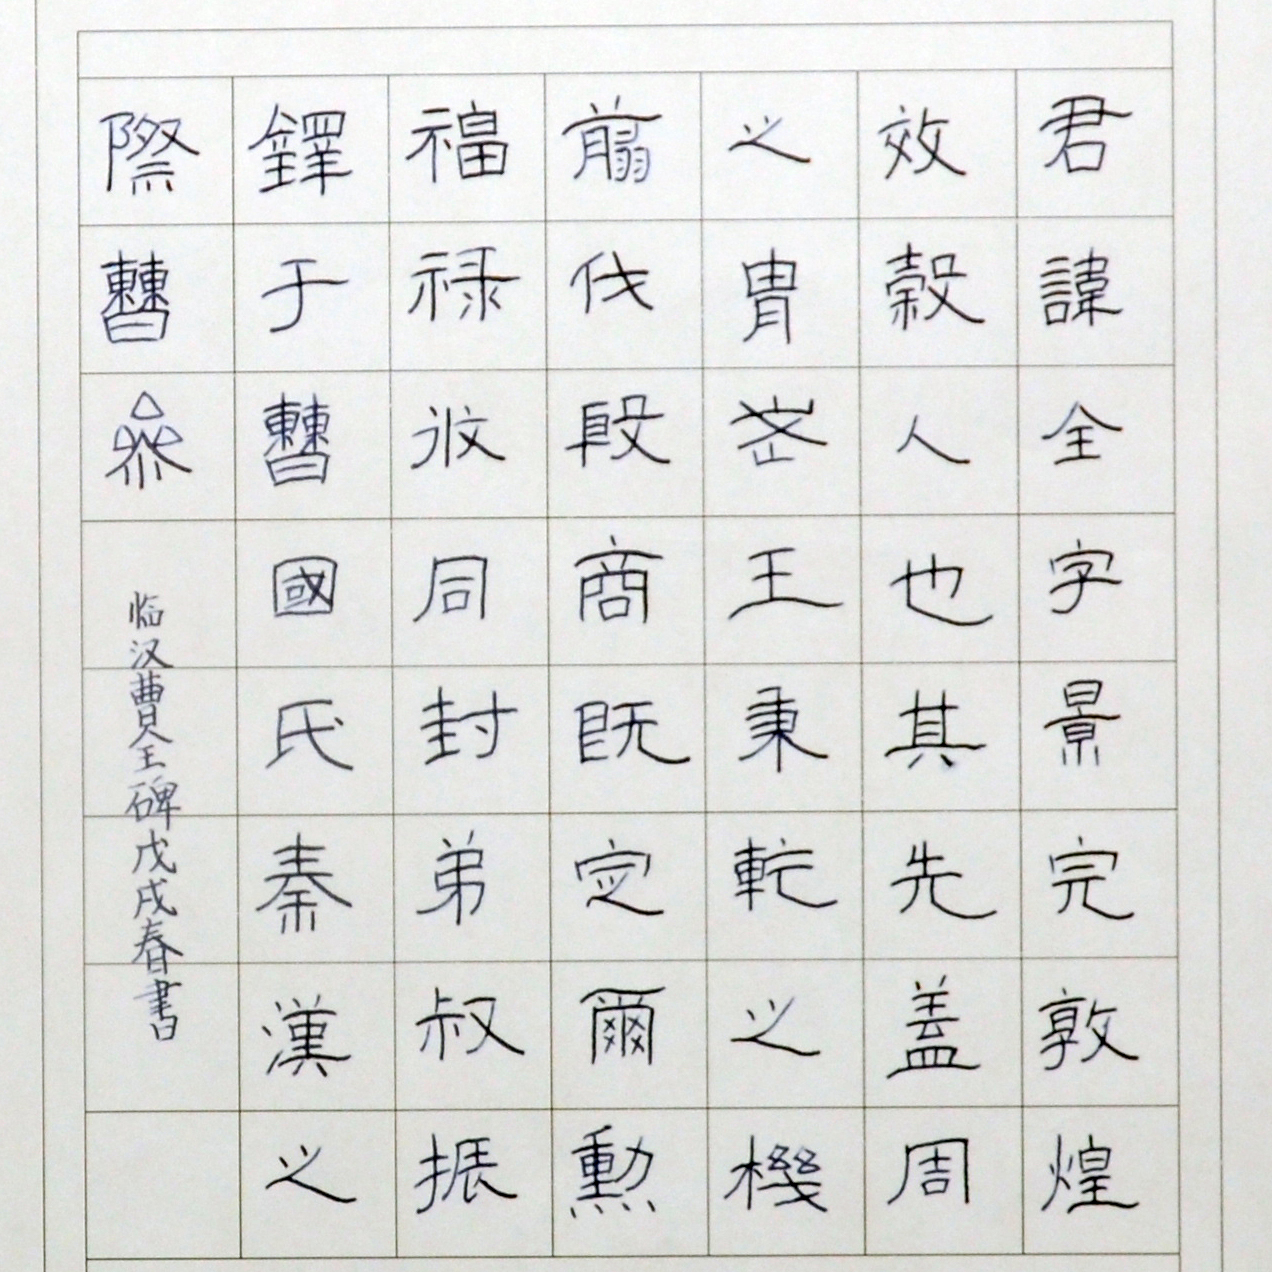 君諱全字景完敦煌
效穀人也其先蓋周
之胄武王秉乾之機
翦伐殷商既定爾勳
福祿攸同封弟叔振
鐸于曹國氏秦漢之
際曹參
临汉曹全碑戊戌春書